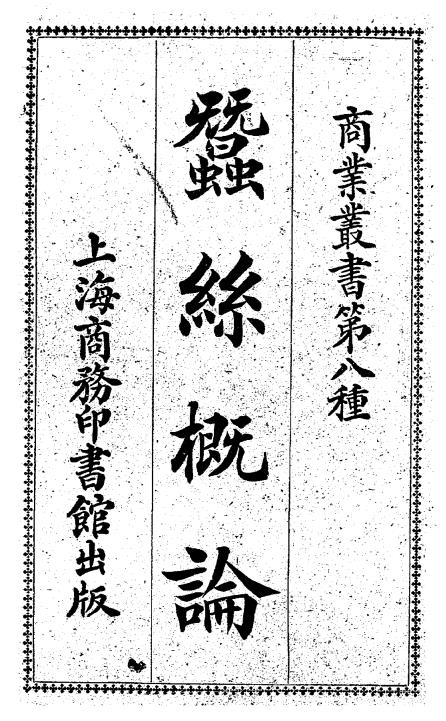 商業叢書第八種
蠶絲概論
上海商務印書館出版